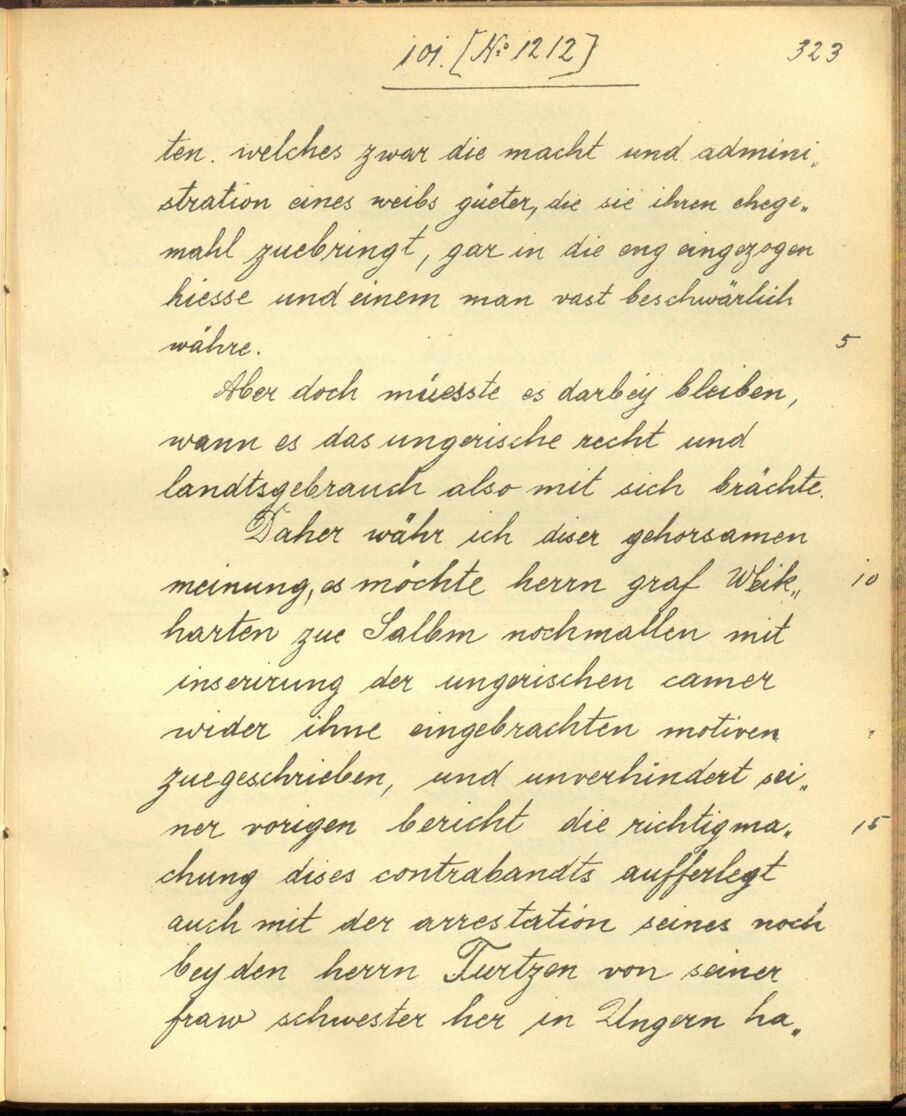 101. [No 1212]
323
ten. welches zwar die macht und admini„
stration eines weibs güeter, die sie ihren ehege„
mahl zuebringt, gar in die eng eingezogen
hiesse und einem man vast beschwärlich
währe.
5
Aber doch müesste es darbey bleiben,
wann es das ungerische recht und
landtsgebrauch also mit sich brächte.
Daher währ ich diser gehorsamen
meinung, es möchte herrn graf Weik„
10
harten zue Salbm nochmallen mit
inserirung der ungerischen camer
wider ihne eingebrachten motiven
zuegeschrieben, und unverhindert sei„
ner vorigen bericht die richtigma„
15
chung dises contrabandts aufferlegt
auch mit der arrestation seines noch
bey den herrn Turtzen von seiner
fraw schwester her in Ungern ha„